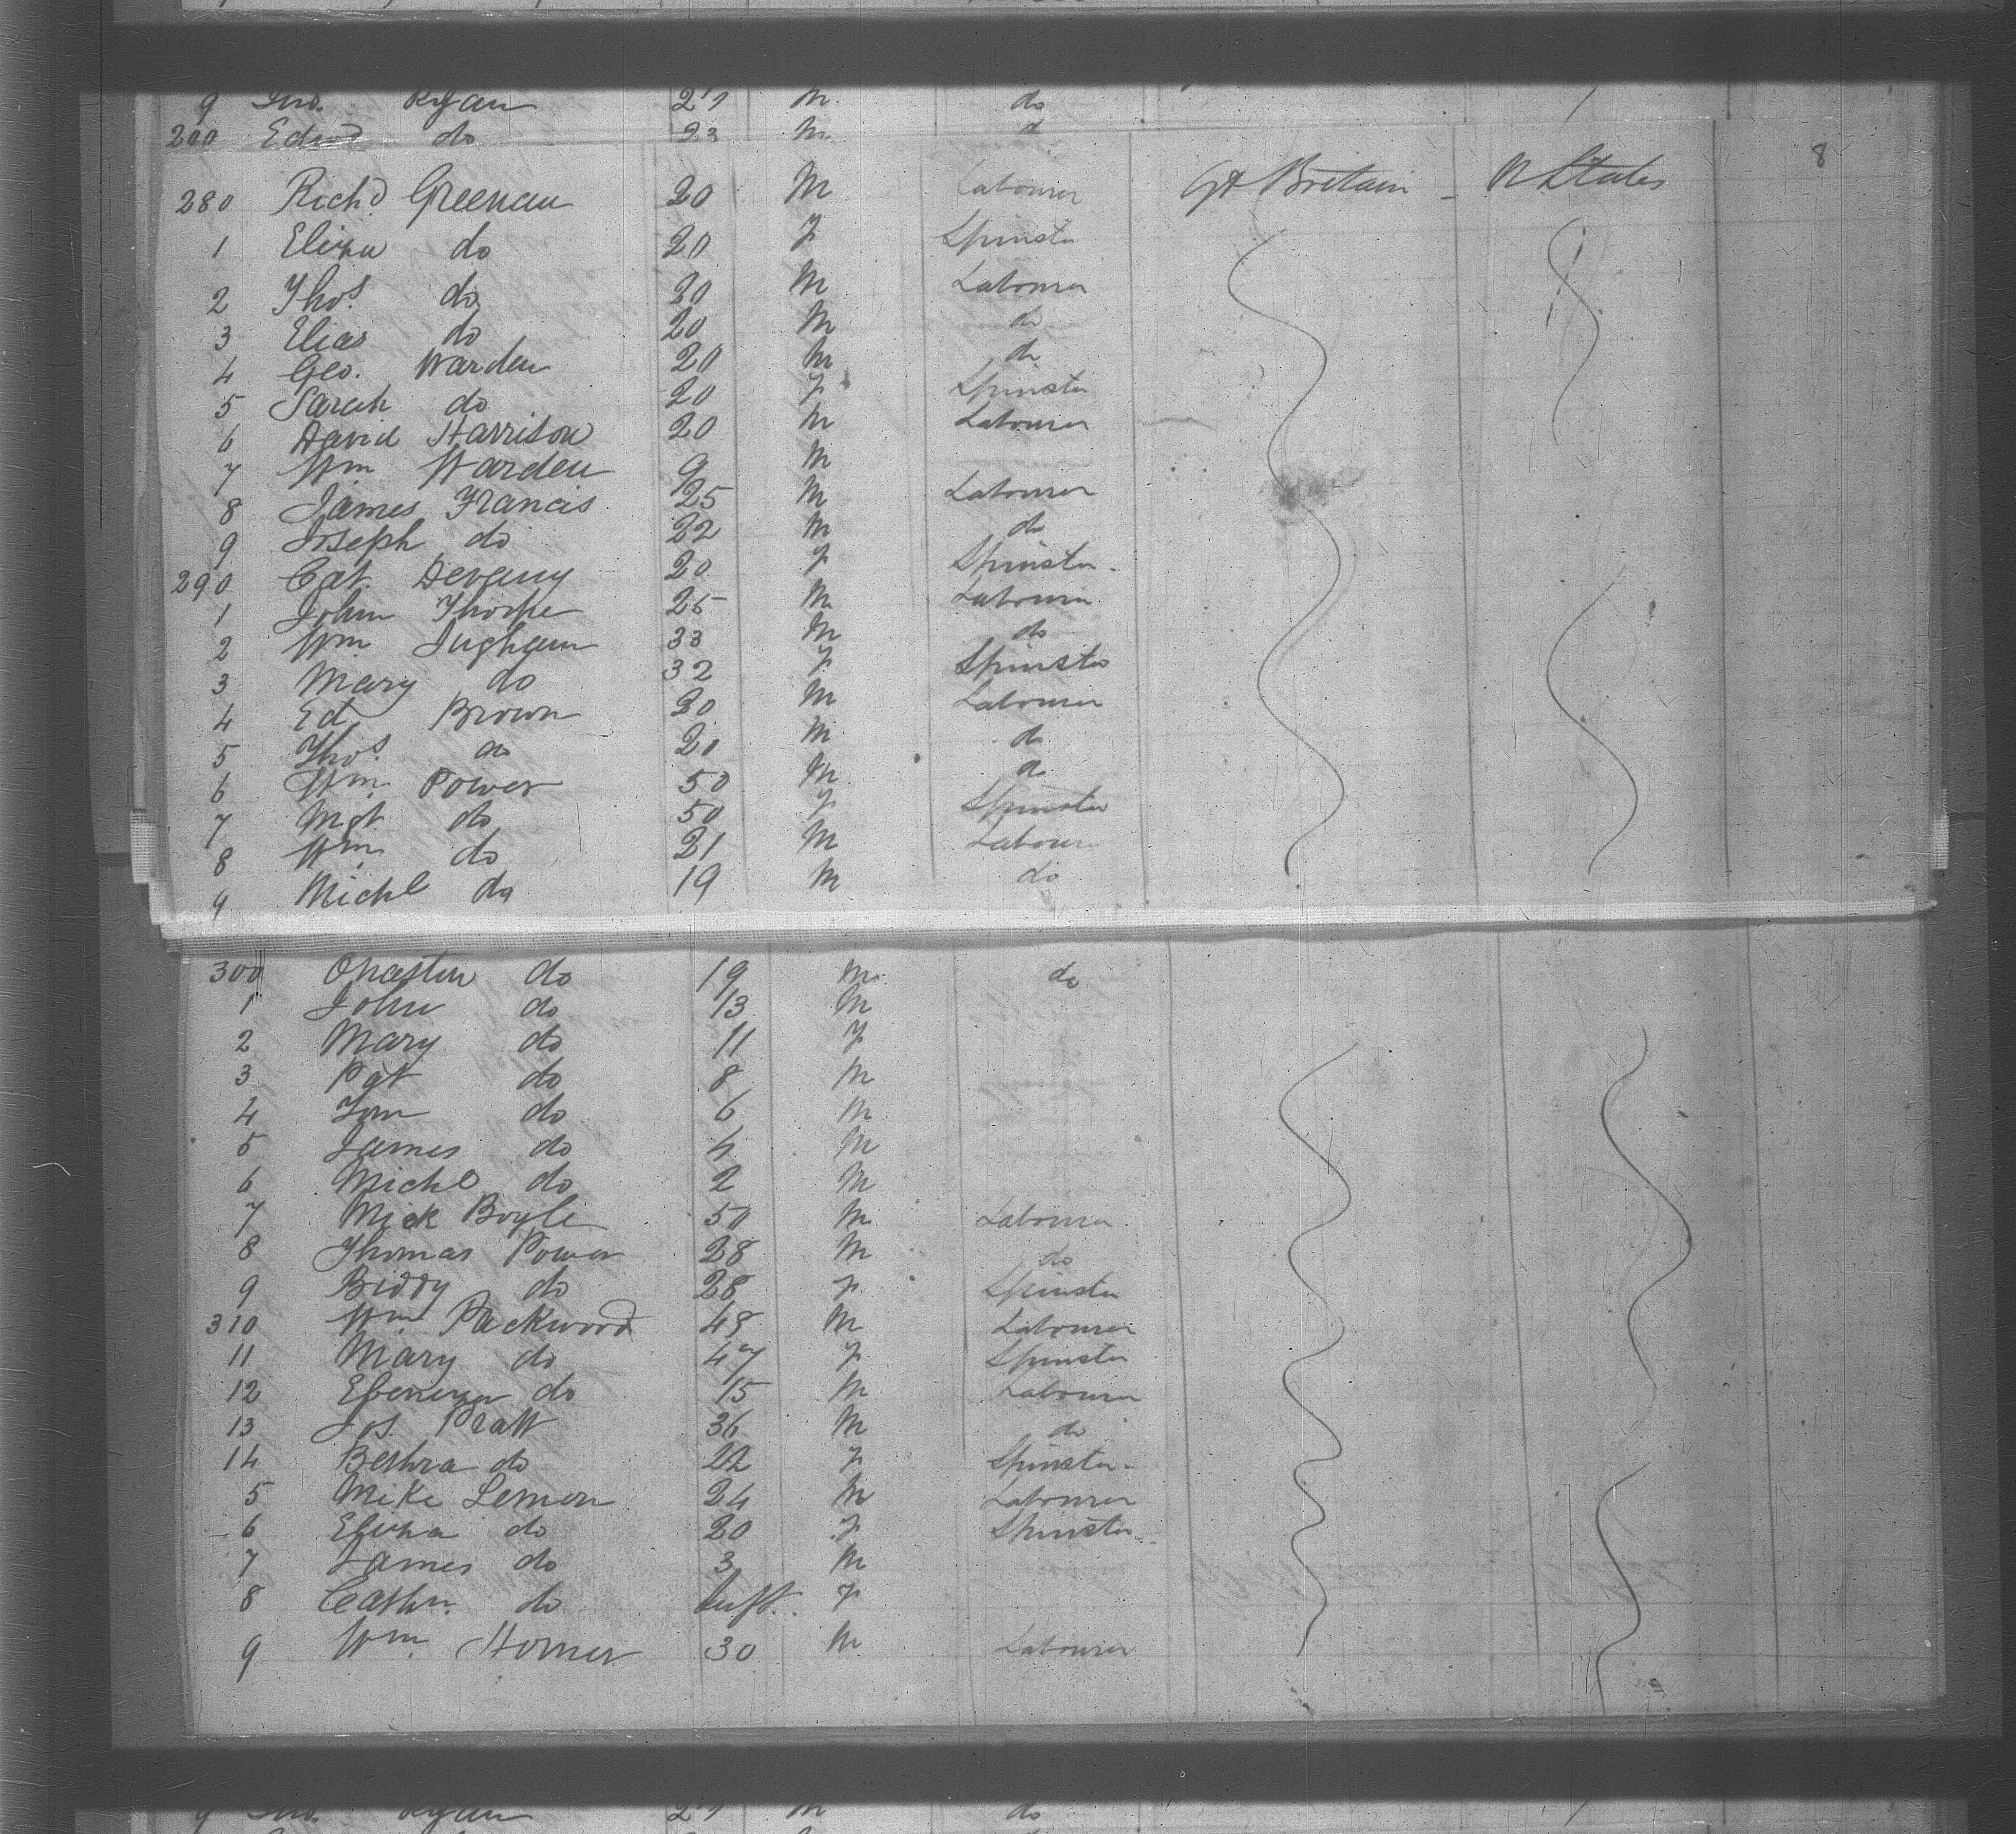 9 Jno. Ryan 27 M do
200 Edwd do 23 M d
8
280 Richd Greenau 20 M Labourer Gt Britain - U States
1 Eliza do 20 F Spinster
2 Thos. do 20 M Labourer
3 Elias do 20 M do
4 Geo. Warden 20 M do
5 Sarah do 20 F Spinster
6 David Harrison 20 M Labourer
7 Wm Warden 9 M
8 James Francis 25 M Labourer
9 Joseph do 22 M do
290 Cat. 20 F Spinster
1 John Thorpe 25 M Labourer
2 Wm Ingham 33 M do
3 Mary do 32 F Spinster
4 Ed Brown 20 M Labourer
5 Thos do 20 M do
6 Wm. Power 50 M do
7 Mgt do 50 F Spinster
8 Wm. do 21 M Labourer
9 Michl do 19 M do
300 do 19 M do
1 John do 13 M
2 Mary do 11 F
3 Pat do 8 M
4 Tom do 6 M
5 James do 4 M
6 Michl do 2 M
7 Mick Boyle 50 M Labourer
8 Thomas Power 28 M do
9 Biddy do 28 F Spinster
310 Wm. Packwood 48 M Labourer
11 Mary do 47 F Spinster
12 Ebenezer do 15 M Labourer
13 Jos. Pratt 36 M do
14 do 22 F Spinster
5 Mike Lemon 24 M Labourer
6 Eliza do 20 F Spinster
7 James do 3 M
8 Cathn. do Inft. F
9 Wm. Horner 30 M Labourer
9 Jno. Ryan 27 M do